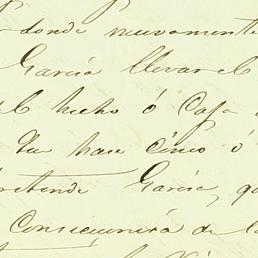 donde nuevamente
Garcia llevar el
el hecho ó Caja
hace cinco ó
pretende Garcia, qu
Consecuencia de la